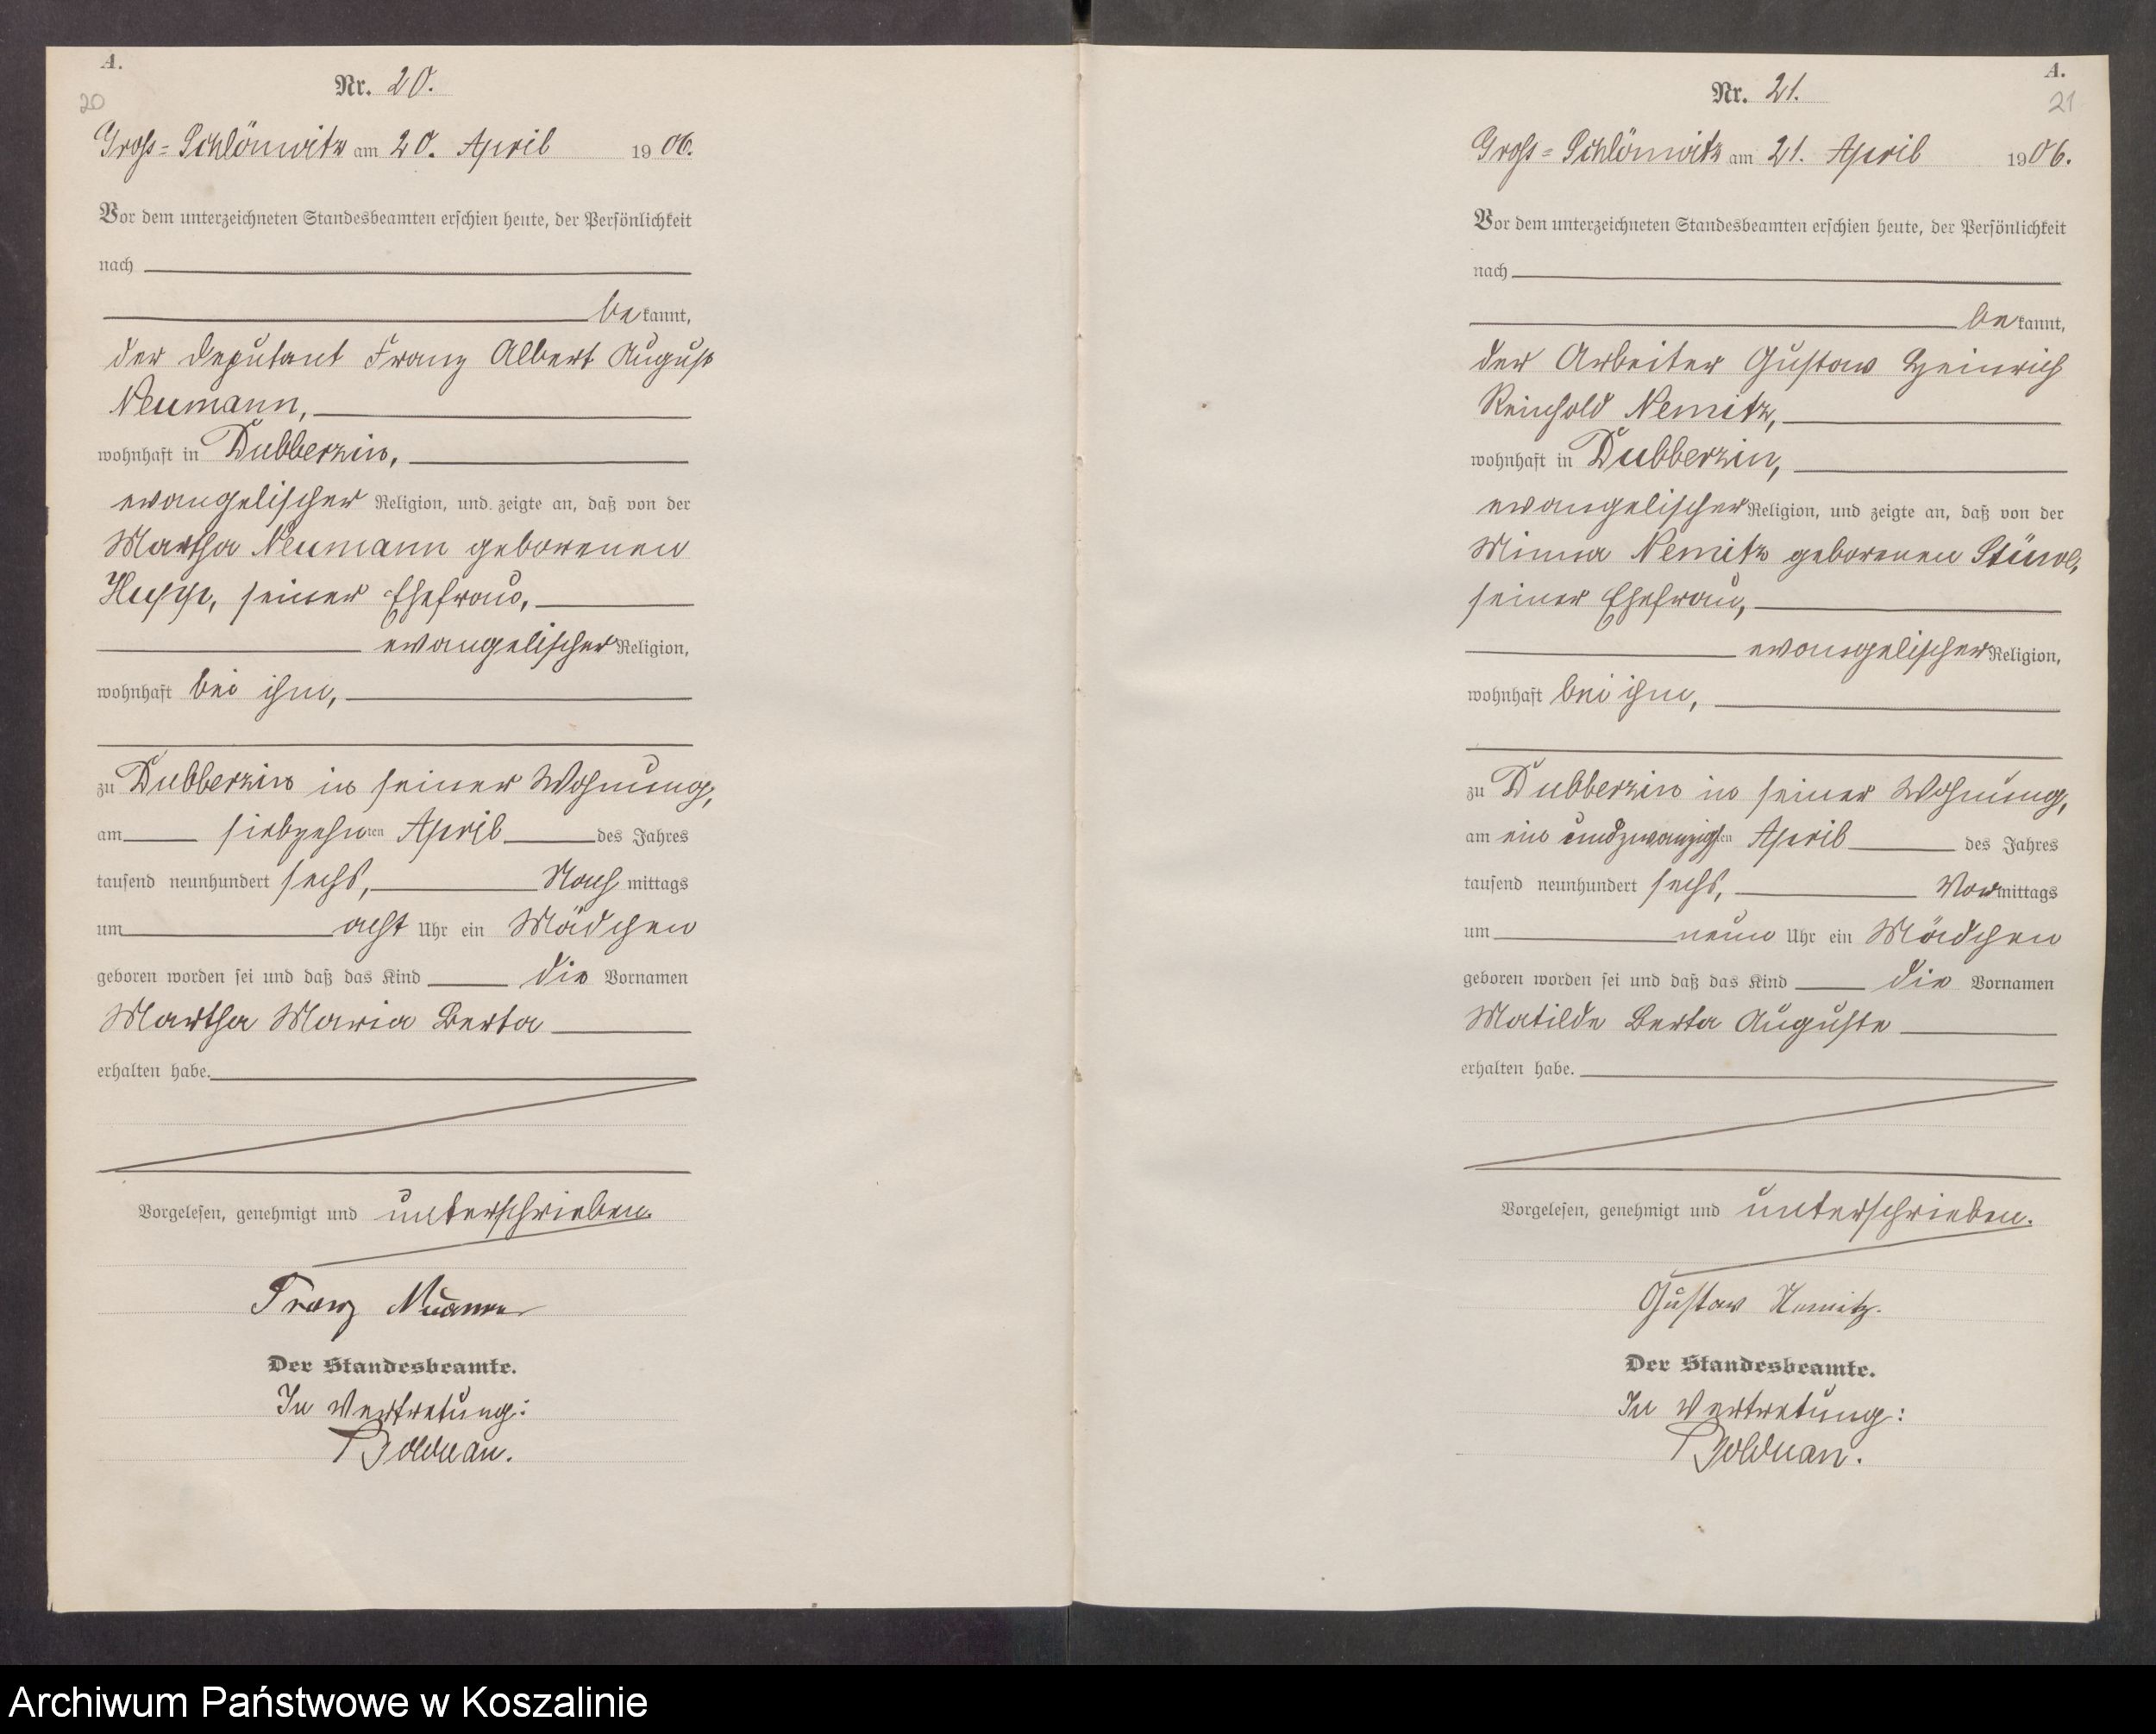 A.
20
Nr. 20.
Gross-Schlönwitz am 20. April 1906.
Vor dem unterzeichneten Standesbeamten erschien heute, der Persönlichkeit
nach
bekannt,
der Deputant Franz Albert August
Neumann,
wohnhaft in Dubberzin,
evangelischer Religion, und zeigte an, daß von der
Martha Neumann geborenen
Hupp, seiner Ehefrau,
evangelischer Religion,
wohnhaft bei ihm,
zu Dubberzin in seiner Wohnung,
am siebzehnten April des Jahres
tausend neunhundert sechs, Nachmittags
um acht Uhr ein Mädchen
geboren worden sei und daß das Kind die Vornamen
Martha Maria Berta
erhalten habe.
Vorgelesen, genehmigt und unterschrieben.
Franz
Der Standesbeamte.
In Vertretung:
Bolduan.
A.
21
Nr. 21.
Gross-Schlönwitz am 21. April 1906.
Vor dem unterzeichneten Standesbeamten erschien heute, der Persönlichkeit
nach
bekannt,
der Arbeiter Gustav Heinrich
Reinhold Nemitz,
wohnhaft in Dubberzin,
evangelischer Religion, und zeigte an, daß von der
Minna Nemitz geborenen
seiner Ehefrau,
evangelischer Religion,
wohnhaft bei ihm,
zu Dubberzin in seiner Wohnung,
am ein undzwanzigsten April des Jahres
tausend neunhundert sechs, Vormittags
um neun Uhr ein Mädchen
geboren worden sei und daß das Kind die Vornamen
Matilde Berta Auguste
erhalten habe.
Vorgelesen, genehmigt und unterschrieben.
Gustav Nemitz.
Der Standesbeamte.
In Vertretung:
Bolduan.
Archiwum Państwowe w Koszalinie